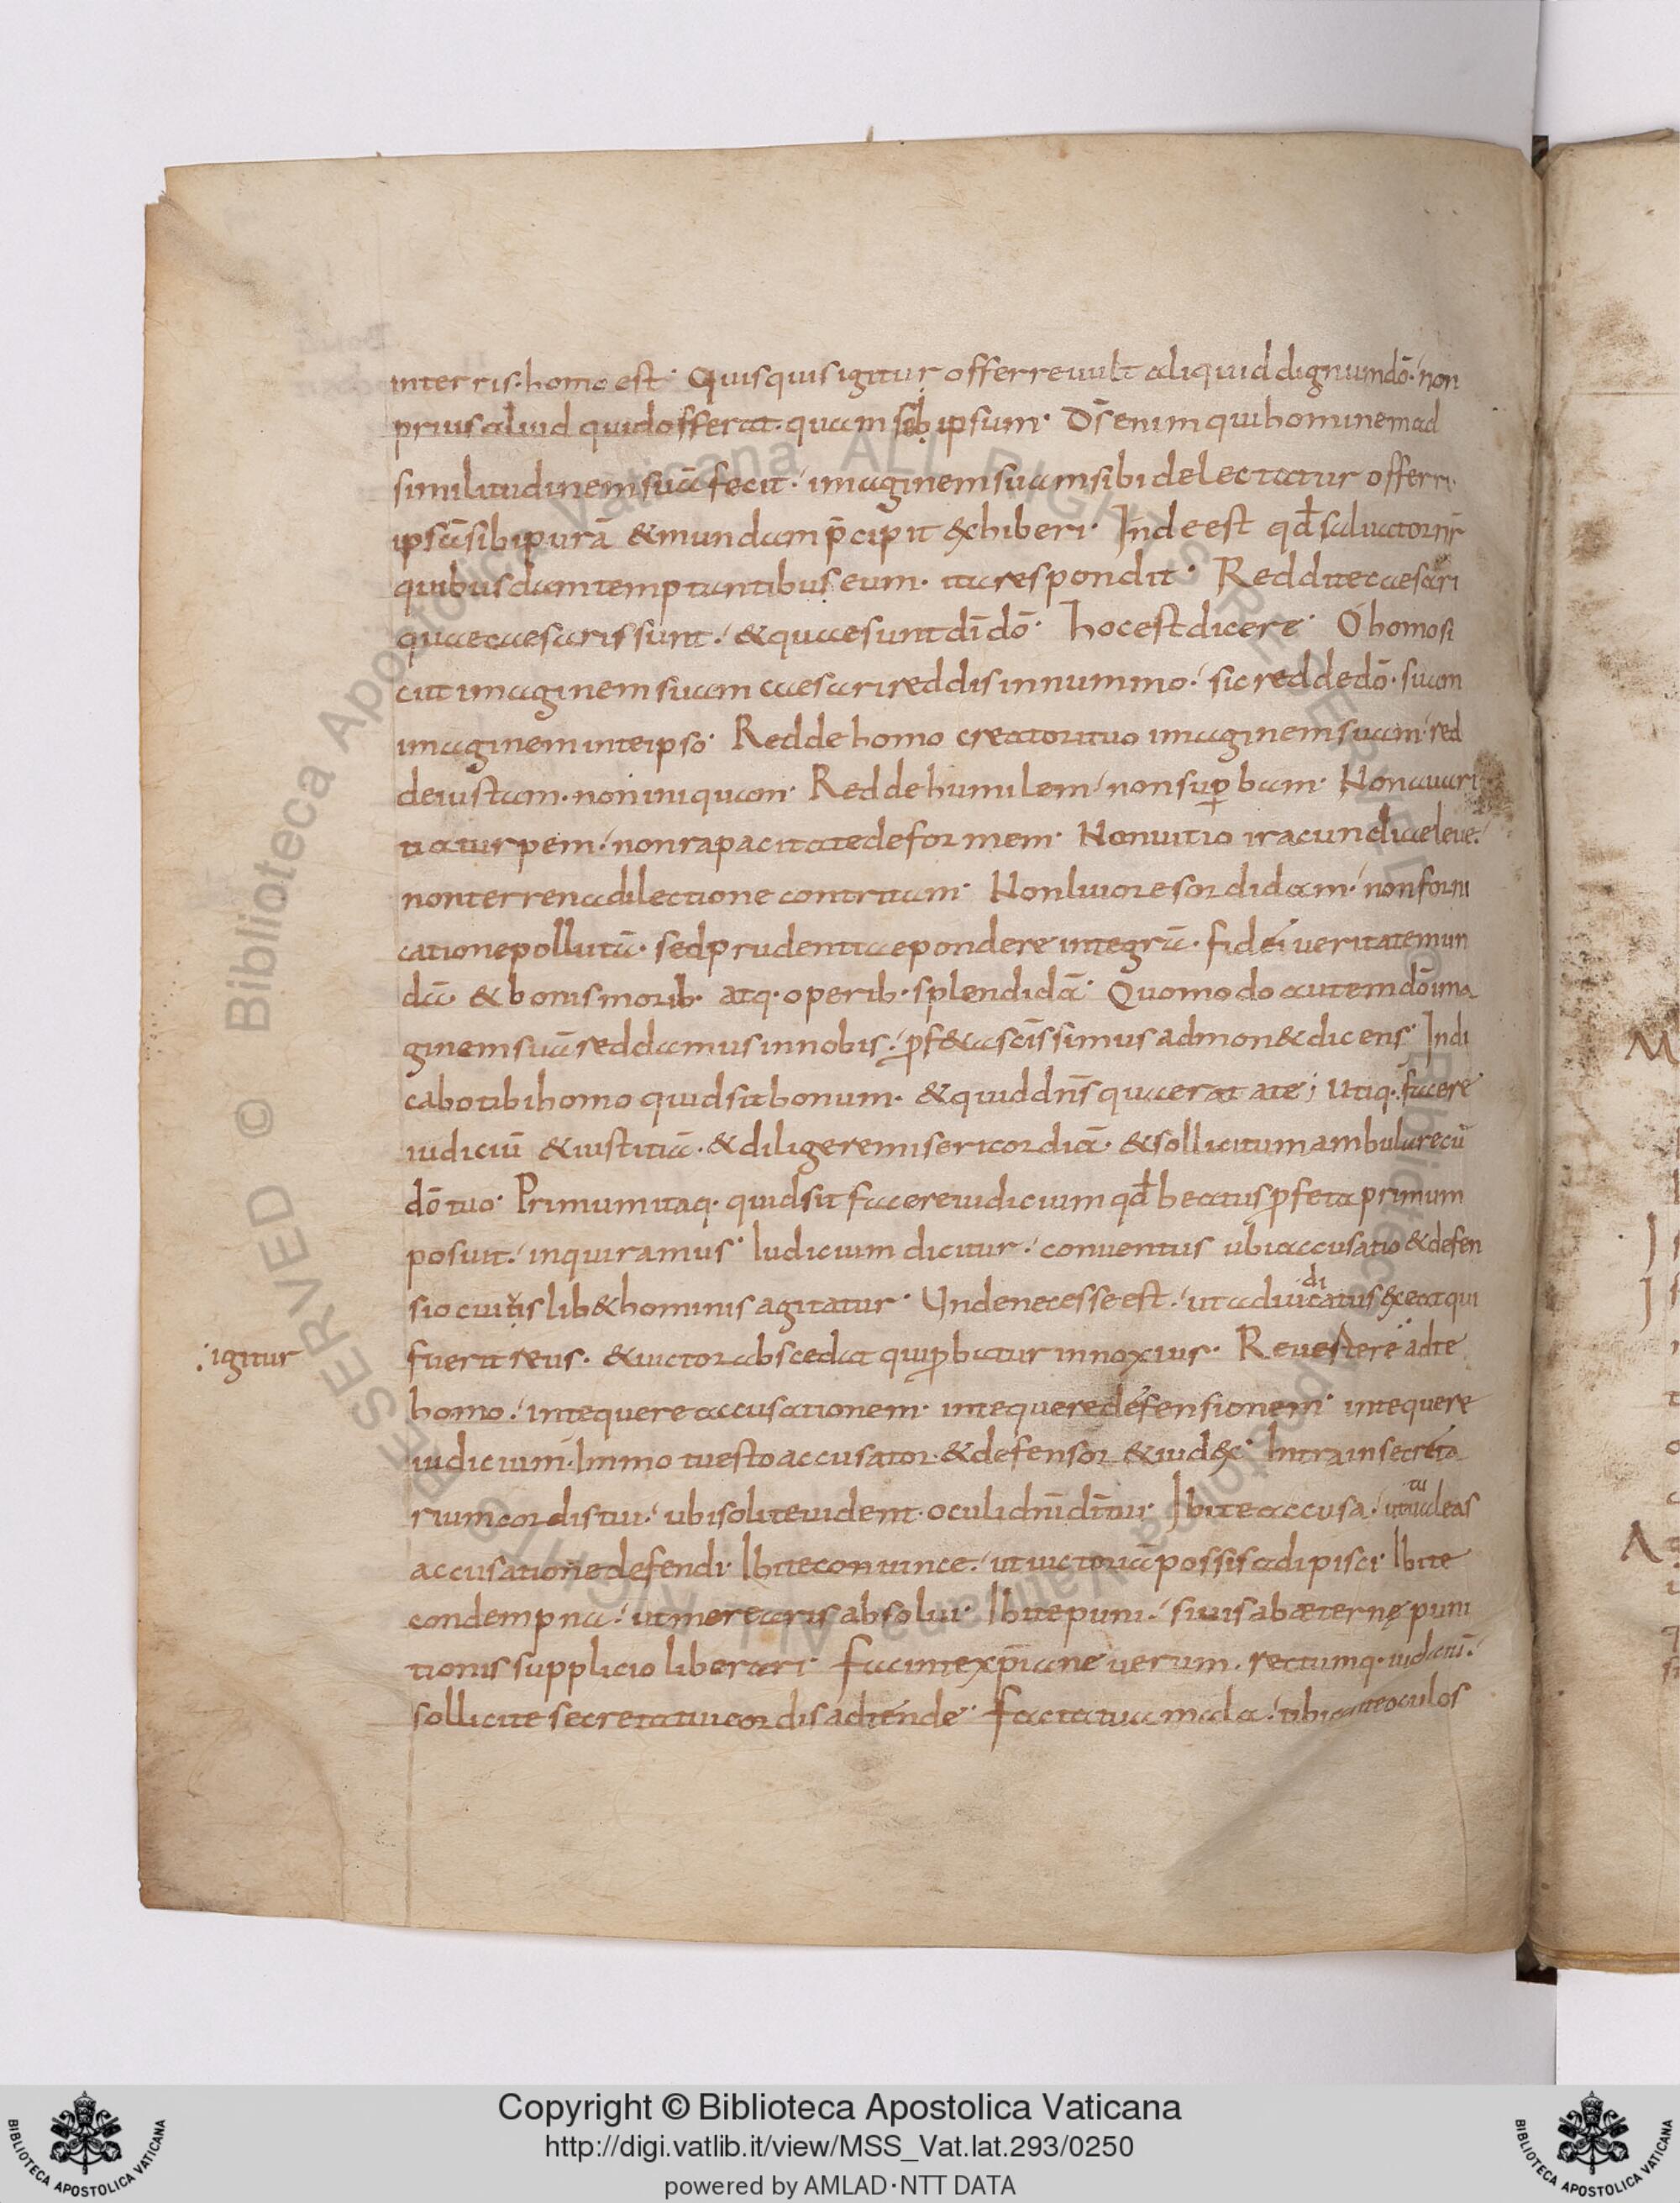 in terris. homo est. Quisquis igitur offerre uult aliquid dignum dō. non
prius aliud quid offerat. quam sēb ipsum. Ds̄ enim qui hominem ad
similitudinem suā fecit. imaginem suam sibi delectatur offerri.
ipsā sibi purā & mundam p̄cipit exhiberi. Inde est qđ saluator nr̄
quibusdam temptantibus eum. ita respondit. Reddite caesari
quae caesaris sunt. & quae sunt dī dō. hoc est dicere. O homo si
cut imaginem suam caesari reddis in nummo. sic redde dō. suam
imaginem in te ipso. Redde homo creatori tuo imaginem suam. red
de iustam. non iniquam. Redde humilem. non suꝑbam. Non auari
tia turpem. non rapacitate deformem. Non uitio iracundiae leue.
non terrena dilectione contritam. Non liuore sordidam. non forni
catione pollutā. sed prudentiae pondere integrā. fidei veritate mun
dā & bonis morib. atq. operib. splendidā. Quomodo autem dō ima
ginem suā reddamus in nobis. ꝓf&a scīssimus admon& dicens. Indi
cabo tibi homo quid sit bonum. & quid dn̄s quaerat a te; Utiq. facere
iudiciū & iustitiā. & diligere misericordiā. & sollicitum ambulare cū
dō tuo. Primum itaq. quid sit facere iudicium qđ beatus ꝓfeta primum
posuit. inquiramus. Iudicium dicitur. conuentus ubi accusatio & defen
sio cuius lib& hominis agitatur. Unde necesse est. ut adiudicatus exeat qui
igitur
fuerit reus. & uictor abscedat qui ꝓbatur innoxius. Reuertere ad te
homo. in te quere accusationem. in te quere defensionem. in te quere
iudicium. Immo tu esto accusator. & defensor & iudex. Intra in secreta
rium cordis tui. ubi soli te uident. oculi dn̄i dī tui. Ibi te accusa. ut tu ualeas
accusatione defendi. Ibi te conuince. ut uictoriā possis adipisci. Ibi te
condempna. ut merearis absolui. Ibi te puni. si uis ab aeternę puni
tionis supplicio liberari. fac in te xp̄iane uerum. rectumq. iudiciū.
sollicite secreta tui cordis adtende. facta tua mala. tibi ante oculos
Copyright © Biblioteca Apostolica Vaticana
http://digi.vatlib.it/view/MSS_Vat.lat.293/0250
powered by AMLAD·NTT DATA